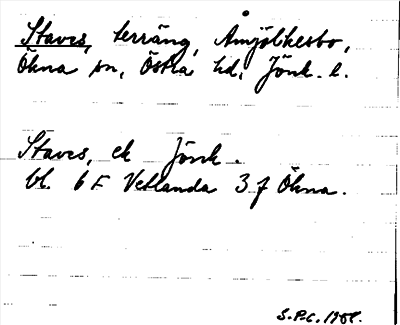 Staves, terräng, Åmjölkesbo,
Ökna sn, Östra hd, Jönk. l.
Staves, ek Jönk.
bl. 6 F Vetlanda 3 f Ökna.
S.P-C.